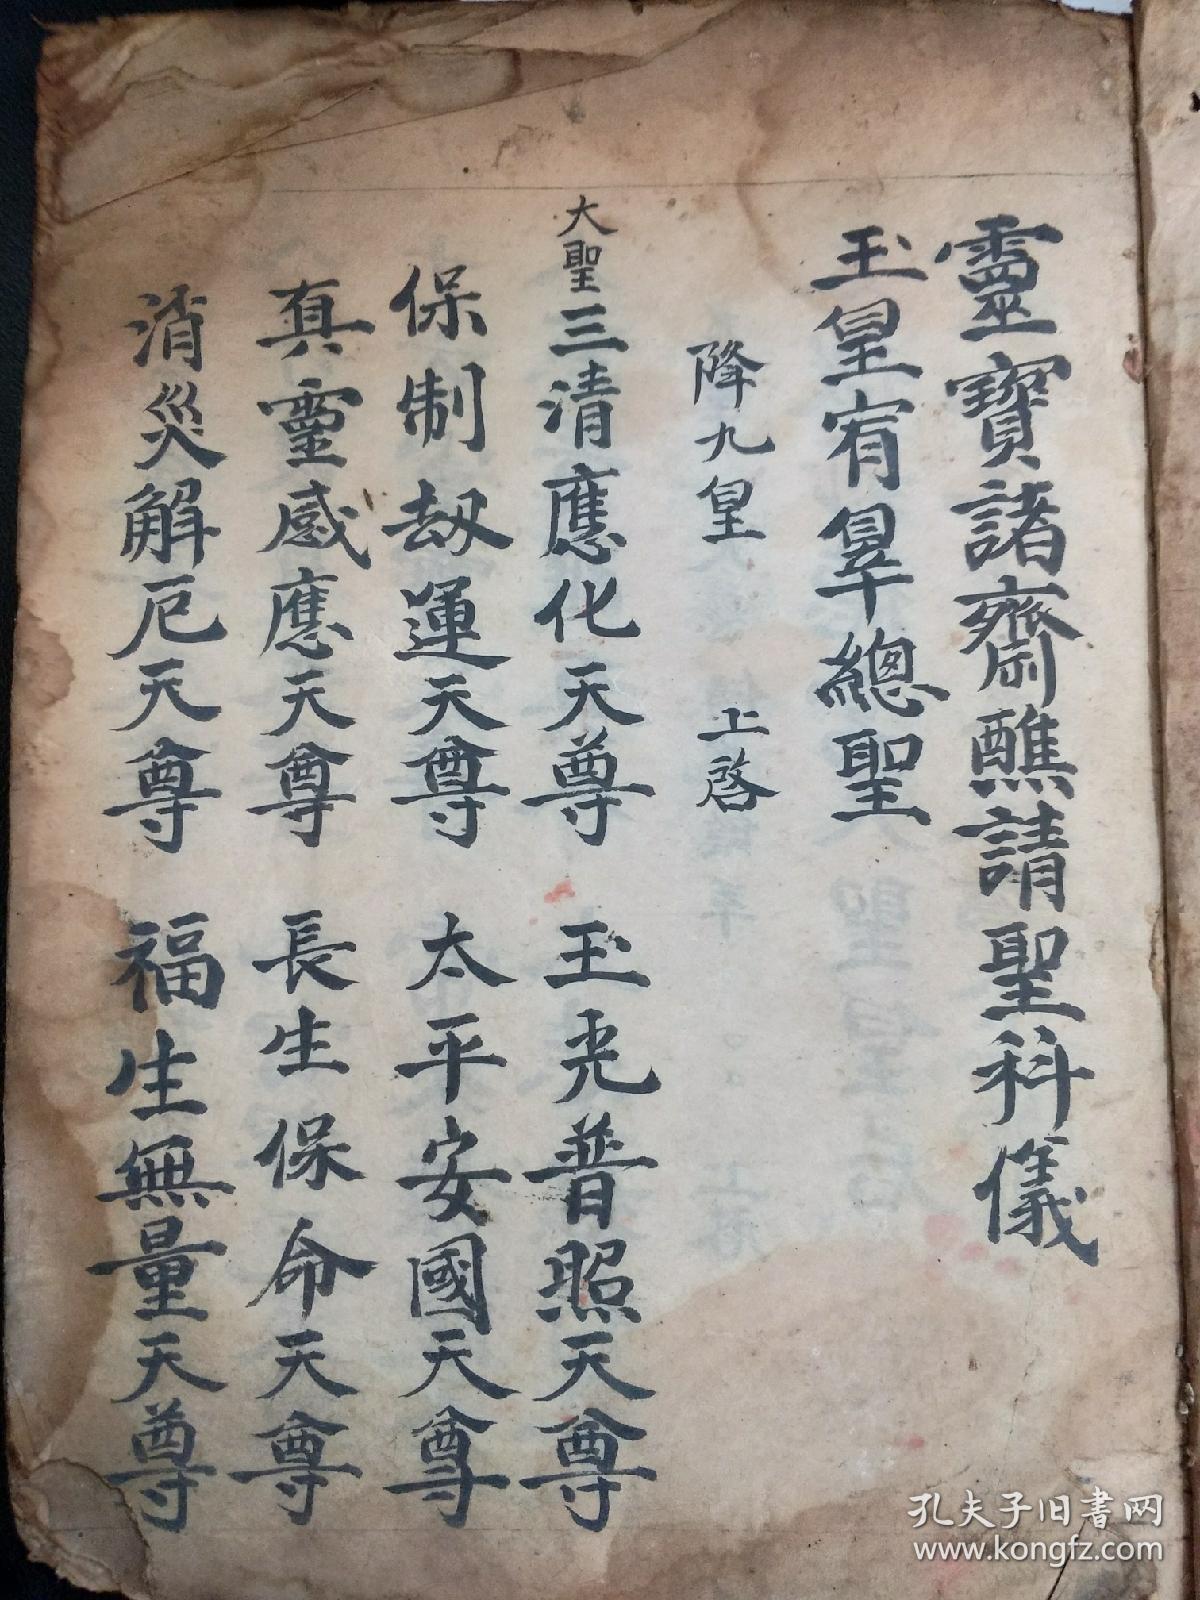 靈寶諸齋醮請聖科儀
玉皇宥辠總聖
降九皇 上啓
大聖三清應化天尊 玉光普照天尊
保制劫運天尊 太平安國天尊
真靈感應天尊 長生保命天尊
消災解厄天尊 福生無量天尊
孔夫子旧书网
www.kongfz.com